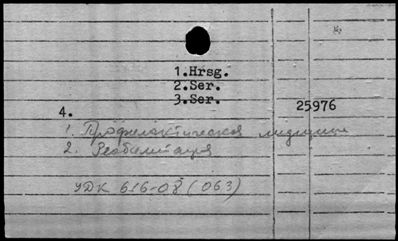 1.Hrsg.
2.Ser.
3.Ser.
25976
4.
1. Профилактическая медицина
2. Реабилитация
УДК 616-08 (063)